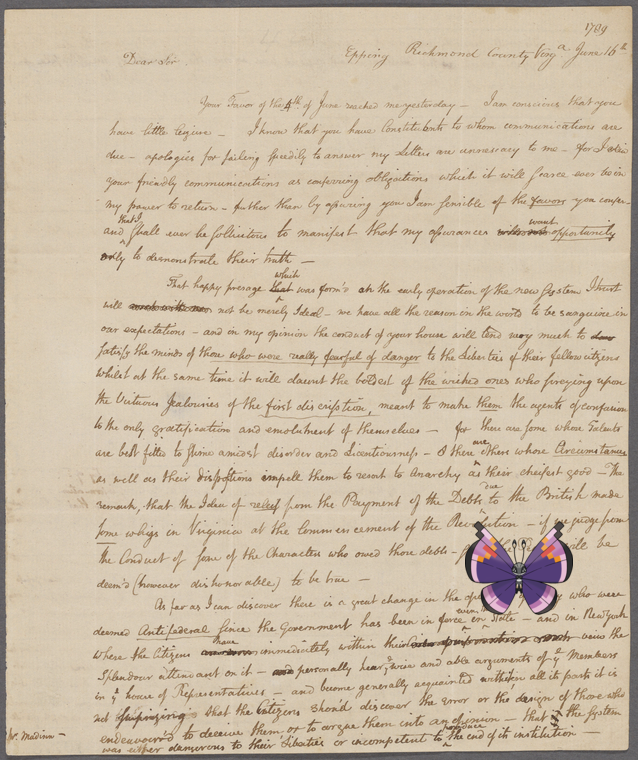 1789
Epping Richmond County Virg.a June 16th
Dear Sir.
Your Favor of the 4th of June reached me yesterday — I am conscious that you
have little leizure — I know that you have Constituents to whom communications are
due — apologies for failing speedily to answer my Letters are unnessacy to me — for I
your friendly communications as conferring obligations which it will scarce ever be in
my power to return — further than by assuring you I am sensible of the favors you confer
and that I shall ever be sollicitous to manifest that my assurances want opportunity
only to demonstrate their truth —
That happy presage which was form'd on the early operation of the new System I trust
will not be merely Ideal — we have all the reason in the world to be sanguine in
our expectations — and in my opinion the conduct of your house will tend very much to
satisfy the minds of those who were really fearful of danger to the Liberties of their fellow citizens
whilst at the same time it will daunt the boldest of the wicked ones who preying upon
the Virtuous Jealousies of the first discription, meant to make them the agents of confusion
to the only gratification and emolument of themselves — for there are some whose Talents
are best fitted to shine amidst disorder and Licentiousness — & there are others whose Circumstances
as well as their dispositions impell them to resort to Anarchy as their cheifest good — The
remark, that the Idea of releif from the Payment of the Debts due to the British made
some whigs in Virginia at the Commencement of the — if we judge from
the Conduct of some of the Characters who owed those debts — will be
deem'd (however dishonorable) to be true —
As far as I can discover there is a great change in the who were
deemed Antifederal since the Government has been in force even in State — and in New York
where the Citizens have immediately within their view the
Splendour attendant on it — personally hear, wise and able arguments of ye Members
in ye house of Representatives — and become generally acquainted with all its parts it is
not surprizing that the Citizens should discover the error or the design of those who
endeavour'd to deceive them, or to argue them into an opinion — that the System
was either dangerous to their Liberties or incompetent to produce the end of its institution —
Mr. Madison —